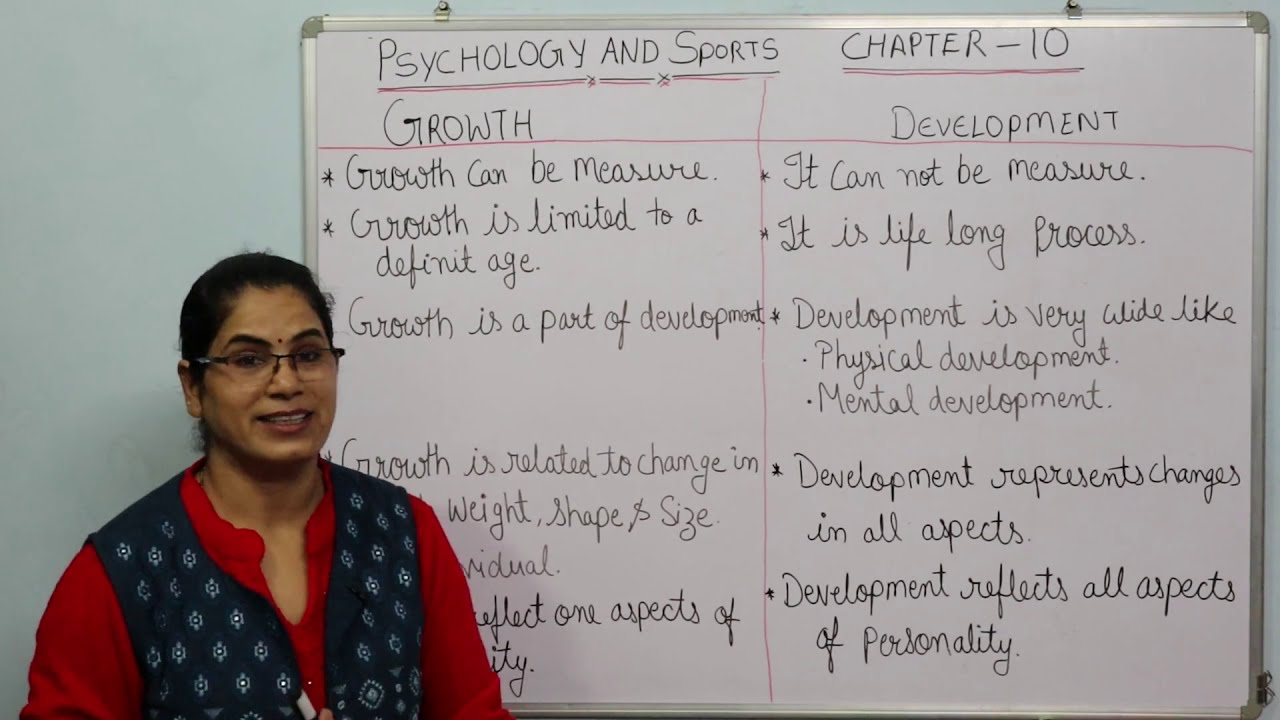 PSYCHOLOGY AND SPORTS CHAPTER-10
GROWTH
* Growth can be measure.
* Growth is limited to a
definit age.
Growth is a part of development.
* Growth is related to change in
weight, shape, & size
vidual.
reflect one aspects of
ity.
DEVELOPMENT
* It can not be measure.
* It is life long process.
* Development is very wide like
· Physical development.
· Mental development.
* Development represents changes
in all aspects.
* Development reflects all aspects
of personality.